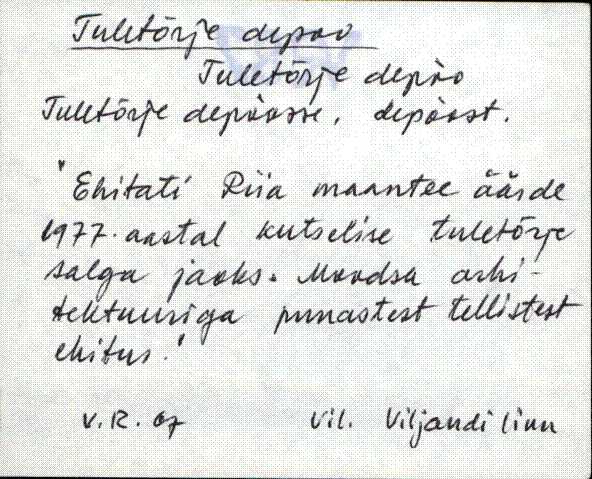 Tuletõrje depoo
Tuletõrje depòo
Tuletõrje depòosse, depòost.
"Ehitati Riia maantee äärde
1977. aastal kutselise tuletõrje
salga jaoks. Moodsa arhi-
tektuuriga punastest tellistest
ehitus."
V. R. 07 Vil. Viljandi linn